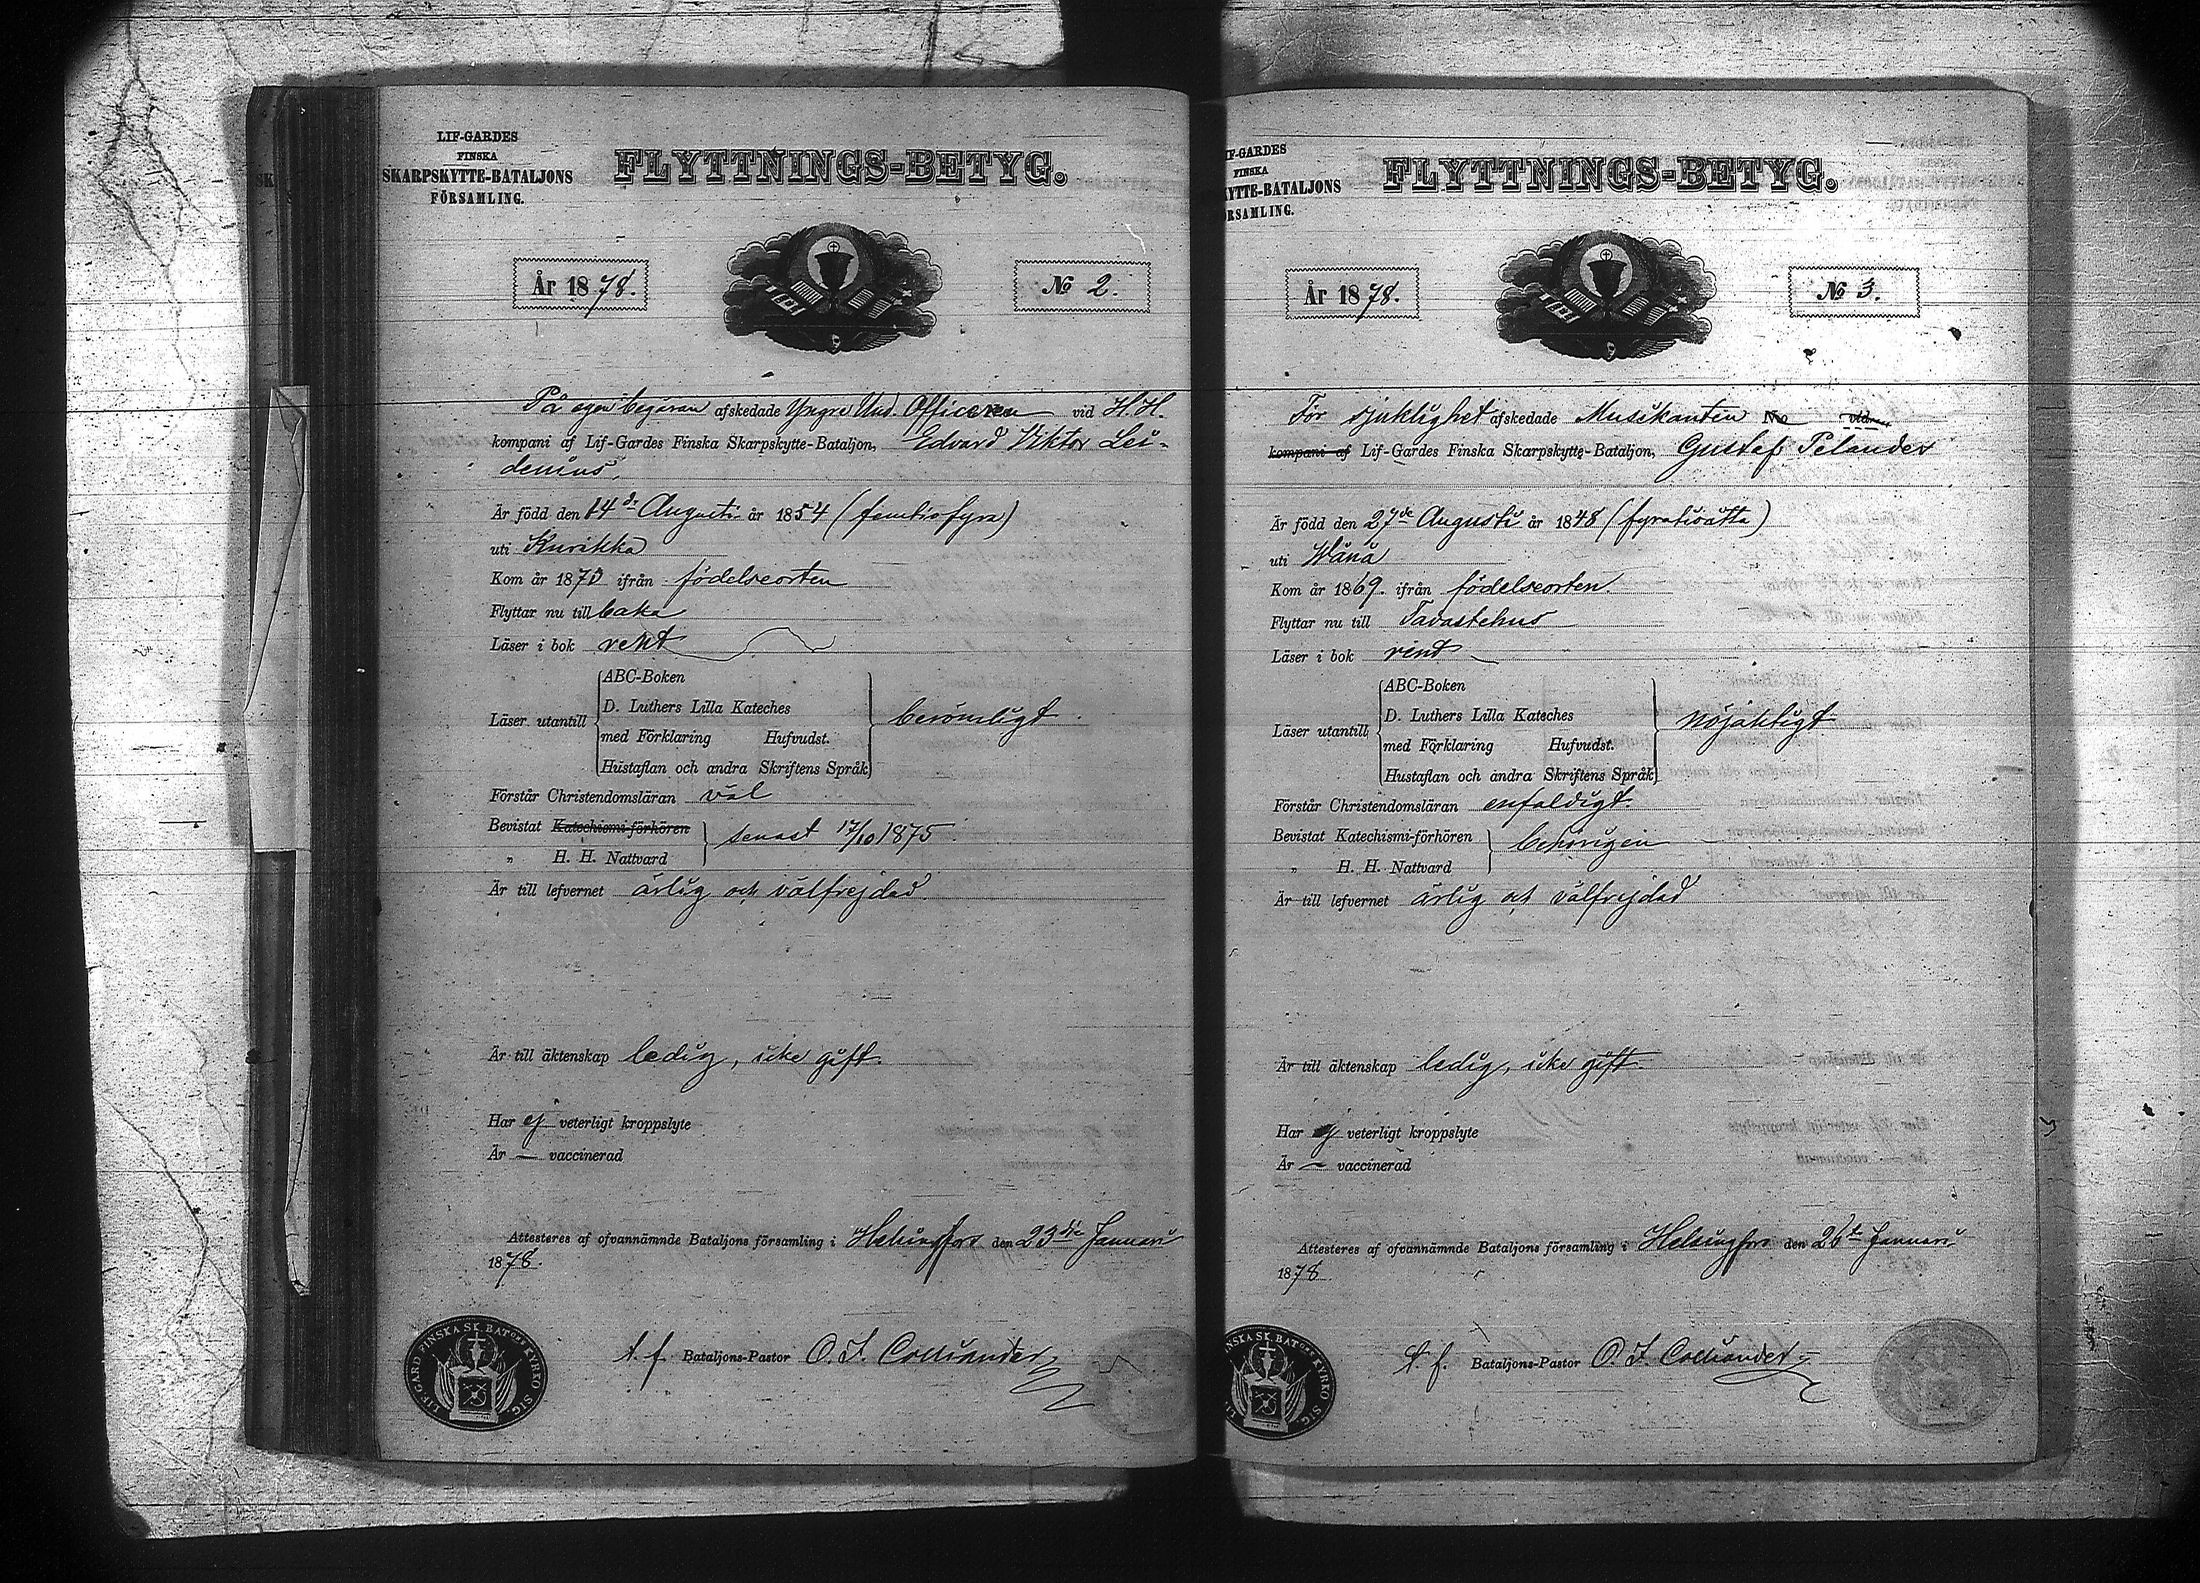 LIF-GARDES
FINSKA
SKARPSKYTTE-BATALJONS
FÖRSAMLING.
FLYTTNINGS-BETYG.
År 1878.
No 2.
På egen begäran afskedade Yngre Und. Officeren vid H. H.
kompani af Lif-Gardes Finska Skarpskytte-Bataljon, Edvard Viktor Lei-
denius,
Är född den 14de Augusti år 1854 (femtiofyra)
uti Kurikka
Kom år 1873 ifrån födelseorten
Flyttar nu till baka
Läser i bok rent
Läser utantill
ABC-Boken
D. Luthers Lilla Kateches
med Förklaring Hufvudst.
Hustaflan och andra Skriftens Språk
berömligt.
Förstår Christendomsläran väl
Bevistat Katechismi-förhören
„ H. H. Nattvard
senast 17/10 1875
Är till lefvernet ärlig och välfrejdad.
Är till äktenskap ledig, icke gift.
Har ej veterligt kroppslyte
Är — vaccinerad
Attesteres af ofvannämnde Bataljons församling i Helsingfors den 23die Januari
1878.
LIF-GARD FINSKA SK. BATONS KYRKO SIG
t. f. Bataljons-Pastor O. I. Colliander
IF-GARDES
FINSKA
YTTE-BATALJONS
RSAMLING.
FLYTTNINGS-BETYG.
År 1878.
No 3.
För sjuklighet afskedade Musikanten No vid
kompani af Lif-Gardes Finska Skarpskytte-Bataljon, Gustaf Pelander
Är född den 27de Augusti år 1848 (fyratioåtta)
uti Wånå
Kom år 1869. ifrån födelseorten.
Flyttar nu till Tavastehus
Läser i bok rent
Läser utantill
ABC-Boken
D. Luthers Lilla Kateches
med Förklaring Hufvudst.
Hustaflan och andra Skriftens Språk
nöjaktigt
Förstår Christendomsläran enfaldigt.
Bevistat Katechismi-förhören
„ H. H. Nattvard
behörigen
Är till lefvernet ärlig och välfrejdad
Är till äktenskap ledig, icke gift.
Har ej veterligt kroppslyte
Är — vaccinerad
Attesteres af ofvannämnde Bataljons församling i Helsingfors den 26te Januari
1878
NSKA SK. BATONS KYRKO SIG
t. f. Bataljons-Pastor O. I. Colliander